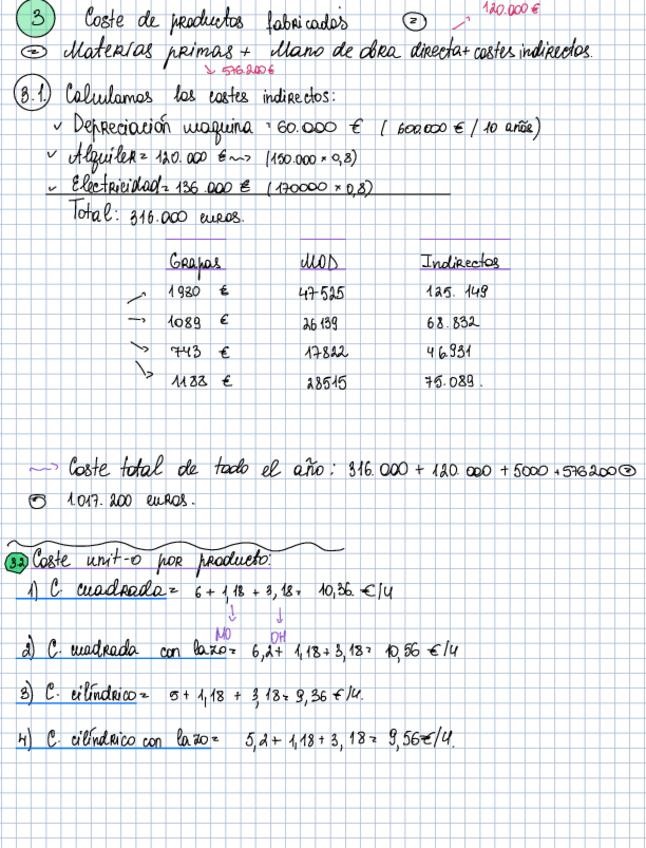 120.000 €
3 Coste de productos fabricados =
= Materias primas + Mano de obra directa + costes indirectos.
576.200€
3.1. Calculamos los costes indirectos:
✓ Depreciación maquina = 60.000 € ( 600.000 € / 10 años)
✓ Alquiler = 120.000 € ⇝ (150.000 × 0,8)
✓ Electricidad = 136.000 € (170000 × 0,8)
Total: 316.000 euros.
Grapas MOD Indirectos
1980 € 47525 125.149
1089 € 26139 68.832
743 € 17822 46.931
1188 € 28515 75.089.
⇝ Coste total de todo el año: 316.000 + 120.000 + 5000 + 576200 =
= 1.017.200 euros.
3.2 Coste unit-o por producto:
1) C. cuadrada = 6 + 1,18 + 3,18 = 10,36 €/u
MO OH
2) C. cuadrada con lazo = 6,2 + 1,18 + 3,18 = 10,56 €/u
3) C. cilíndrico = 5 + 1,18 + 3,18 = 9,36 €/u.
4) C. cilíndrico con lazo = 5,2 + 1,18 + 3,18 = 9,56€/u.